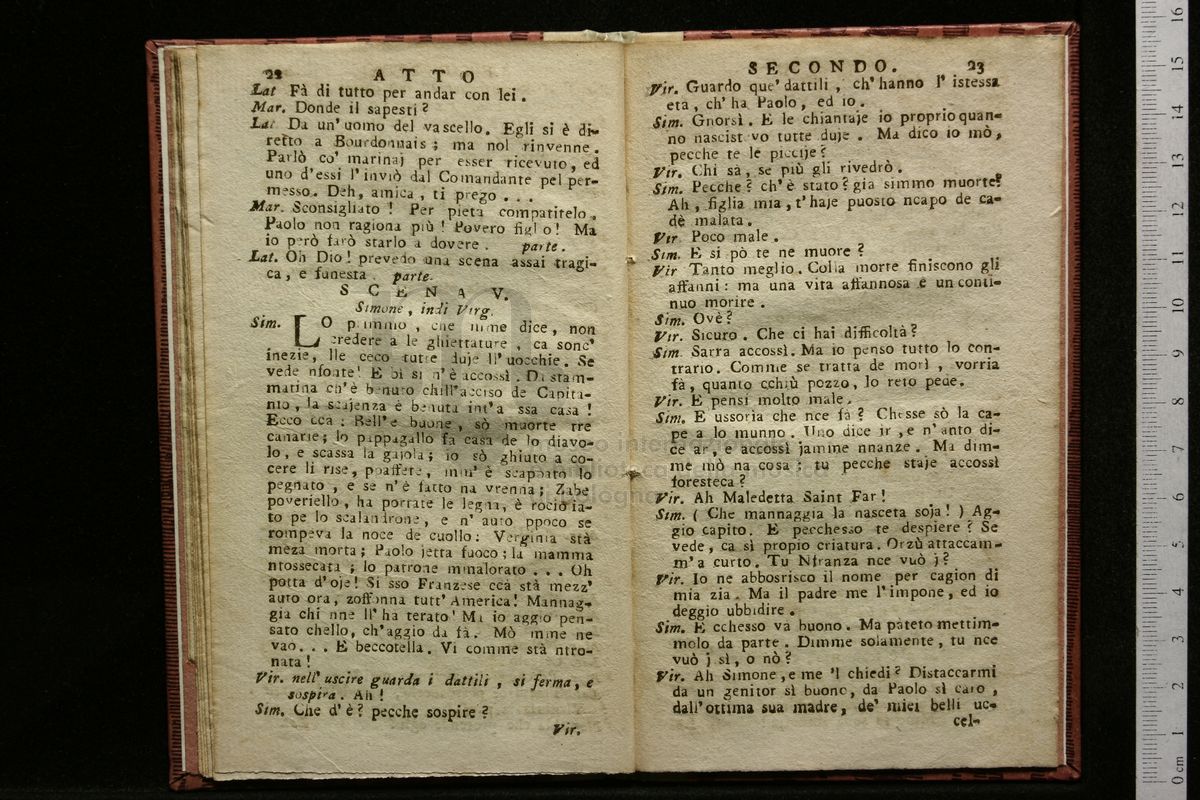 22 ATTO
Lat Fà di tutto per andar con lei.
Mar. Donde il sapesti?
Lat Da un' uomo del vascello. Egli si è di-
retto a Bourdonnais; ma nol rinvenne.
Parlò co' marinaj per esser ricevuto, ed
uno d'essi l'inviò dal Comandante pel per-
messo. Deh, amica, ti prego...
Mar. Sconsigliato! Per pietà compatitelo.
Paolo non ragiona più! Povero figlio! Ma
io però farò starlo a dovere. parte.
Lat. Oh Dio! prevedo una scena assai tragi-
ca, e funesta. parte.
SCENA V.
Simone, indi Virg.
Sim. LO primmo, che mme dice, non
credere a le ghiettature, ca sonc'
inezie, lle ceco tutte duje ll' uocchie. Se
vede nfonte! E bì si n'è accossì. Da stam-
matina ch'è benuto chill'acciso de Capita-
nio, la scajenza è benuta int'a ssa casa!
Ecco cca: Bell'e buone, sò muorte tre
canarie; lo pappagallo fa casa de lo diavo-
lo, e scassa la gajola; io sò ghiuto a co-
cere li rise, pnaffete, mm' è scappato lo
pegnato, e se n'è fatto na vrenna; Zabe
poveriello, ha portate le legna, è rociolia-
to pe lo scalandrone, e n' auto ppoco se
rompeva la noce de cuollo: Verginia stà
meza morta; Paolo jetta fuoco; la mamma
ntossecata; lo patrone mmalorato... Oh
potta d'oje! Si sso Franzese ccà stà mezz'
auto ora, zoffonna tutt' America! Mannag-
gia chi nne ll' ha terato! Ma io aggio pen-
sato chello, ch'aggio da fà. Mò mme ne
vao... E beccotella. Vi comme stà ntro-
nata!
Vir. nell' uscire guarda i dattili, si ferma, e
sospira. Ah!
Sim. Che d'è? pecche sospire?
Vir.
SECONDO. 23
Vir. Guardo que' dattili, ch' hanno l' istessa
età, ch' ha Paolo, ed io.
Sim. Gnorsì. E le chiantaje io proprio quan-
no nascistevo tutte duje. Ma dico io mò,
pecche te le piccije?
Vir. Chi sà, se più gli rivedrò.
Sim. Pecche? ch'è stato? già simmo muorte?
Ah, figlia mia, t'haje puosto ncapo de ca-
dè malata.
Vir Poco male.
Sim. E si pò te ne muore?
Vir Tanto meglio. Colla morte finiscono gli
affanni: ma una vita affannosa è un conti-
nuo morire.
Sim. Ovè?
Vir. Sicuro. Che ci hai difficoltà?
Sim. Sarra accossì. Ma io penso tutto lo con-
trario. Comme se tratta de morì, vorria
fà, quanto cchiù pozzo, lo reto pede.
Vir. E pensi molto male.
Sim. E ussoria che nce fa? Chesse sò la ca-
pe a lo munno. Uno dice ir, e n' auto di-
ce ar, e accossì jammo nnanze. Ma dim-
me mò na cosa: tu pecche staje accossì
foresteca?
Vir. Ah Maledetta Saint Far!
Sim. ( Che mannaggia la nasceta soja! ) Ag-
gio capito. E perchesso te despiere? Se
vede, ca sì propio criatura. Orzù attaccam-
m'a curto. Tu Nfranza nce vuò j?
Vir. Io ne abborrisco il nome per cagion di
mia zia. Ma il padre me l'impone, ed io
deggio ubbidire.
Sim. E cchesso va buono. Ma pateto mettim-
molo da parte. Dimme solamente, tu nce
vuò j sì, o nò?
Vir. Ah Simone, e me 'l chiedi? Distaccarmi
da un genitor sì buono, da Paolo sì caro,
dall' ottima sua madre, de' miei belli uc-
cel-